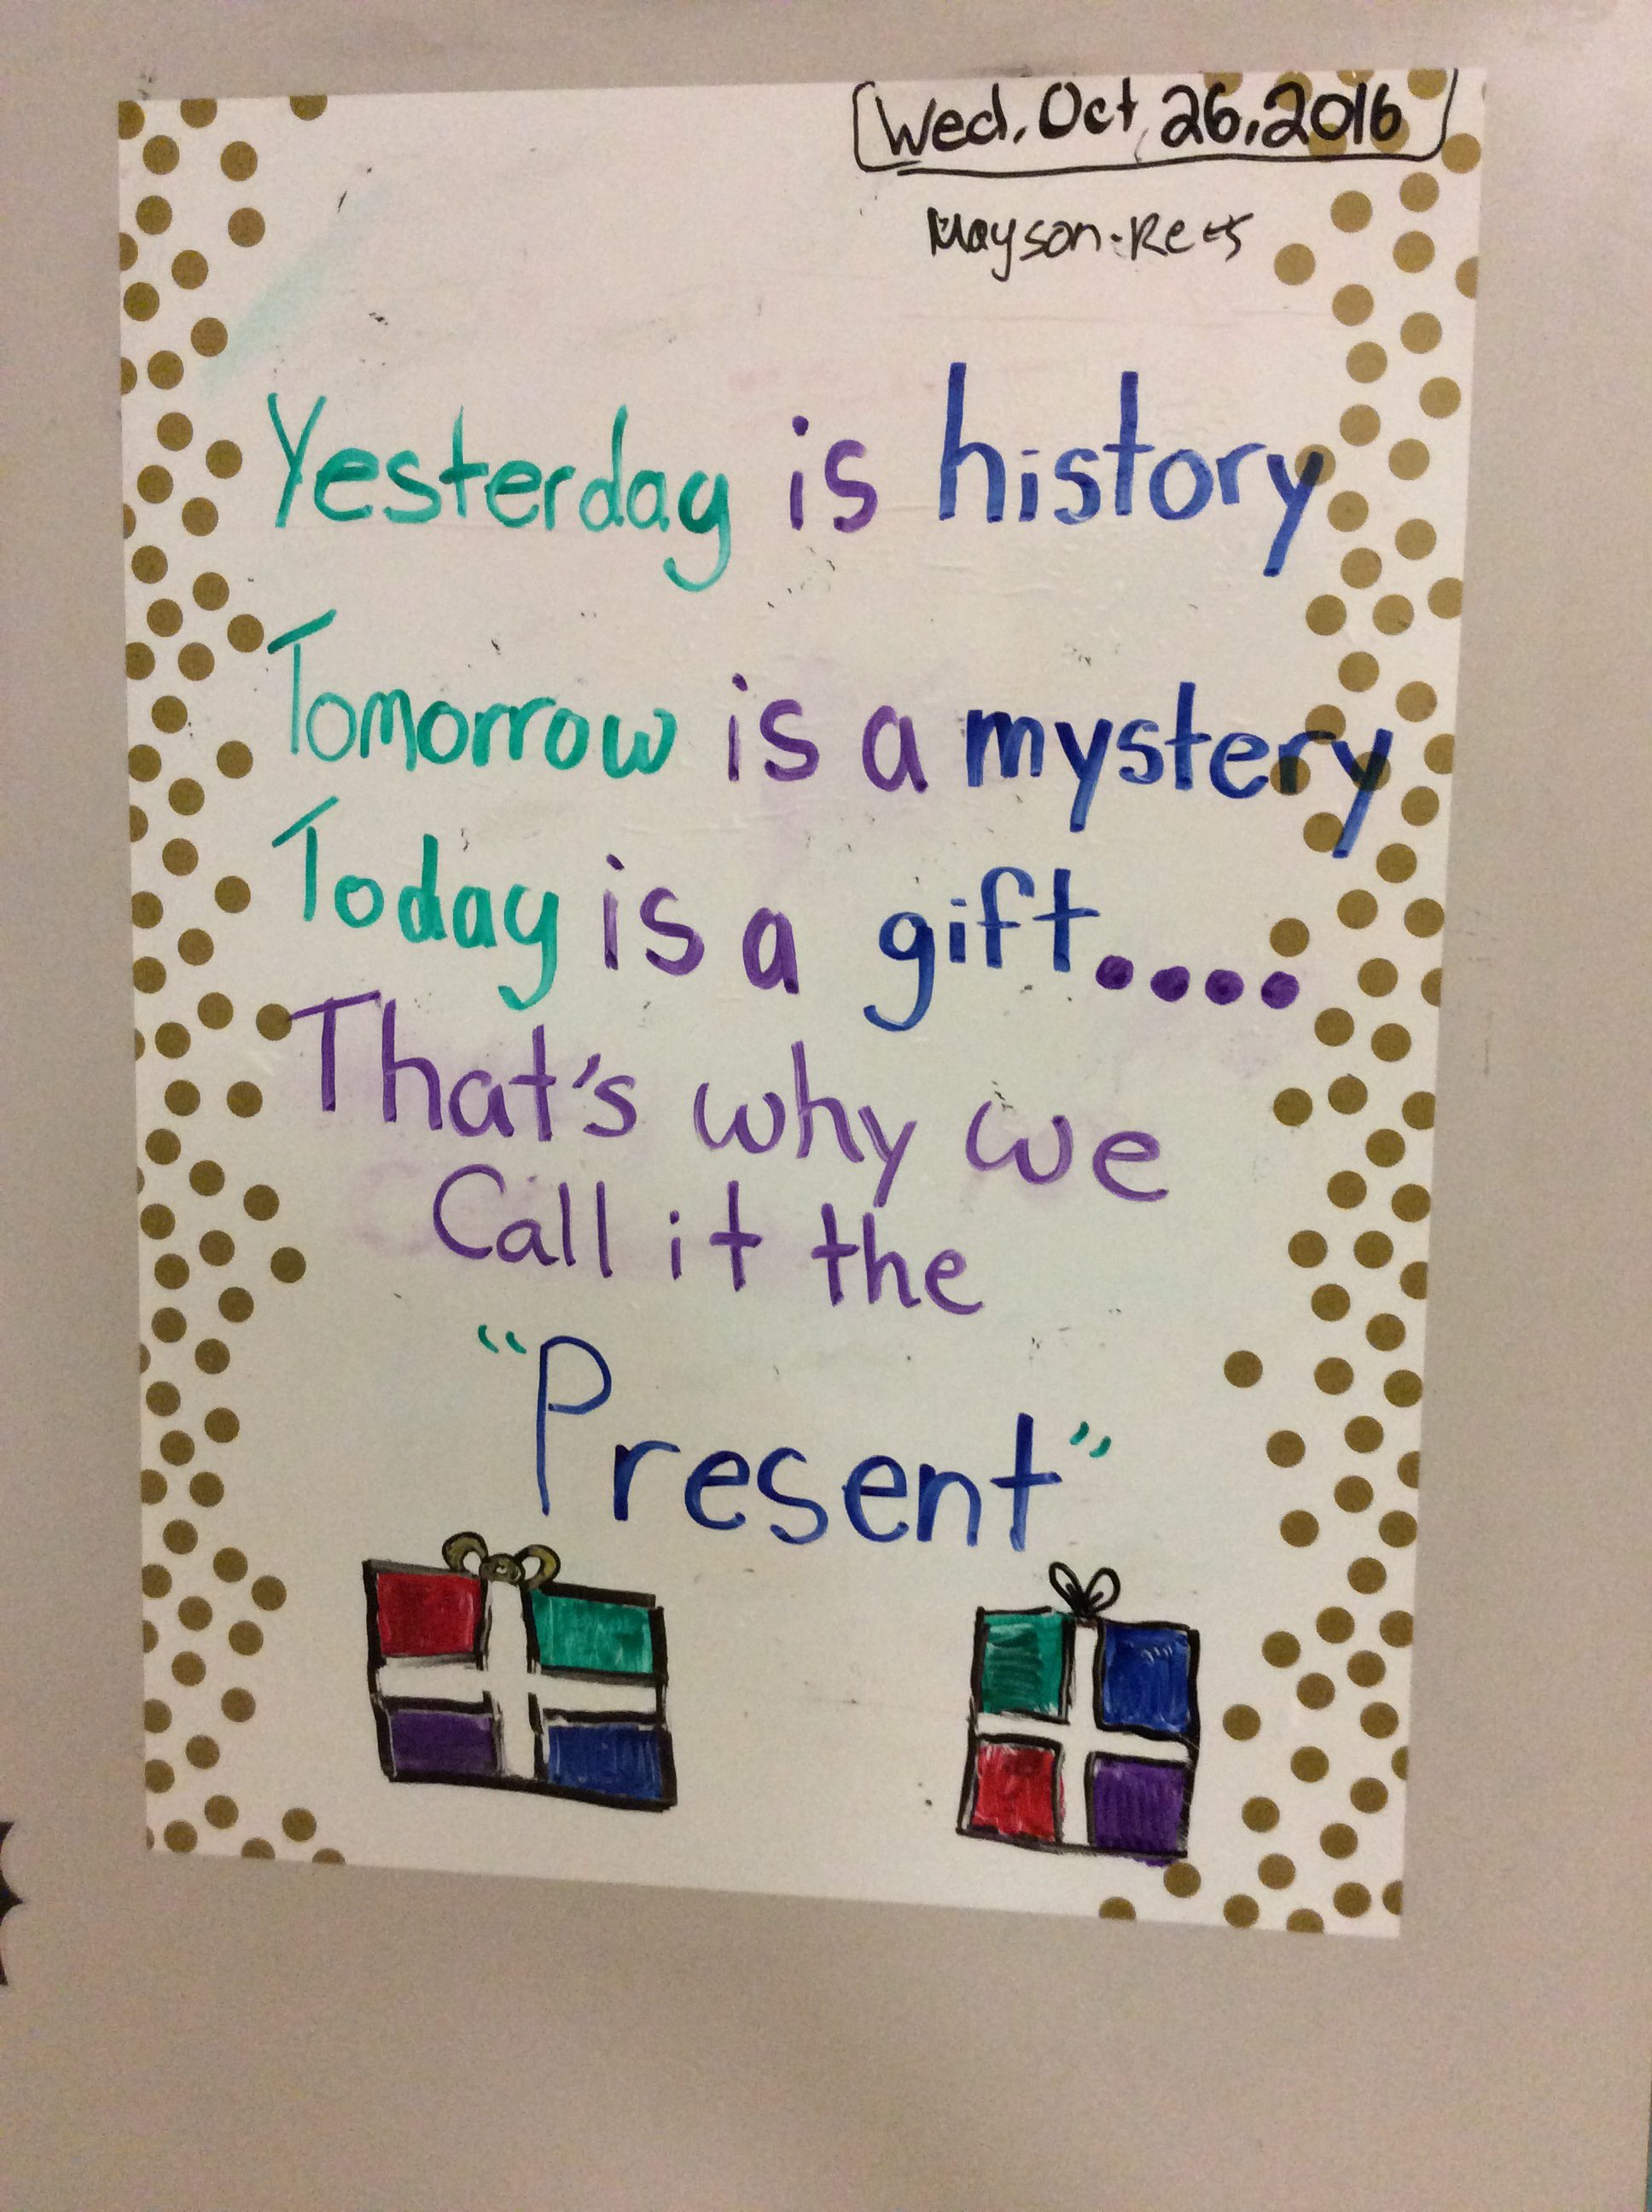 Wed. Oct. 26, 2016
Mayson-Rees
Yesterday is history
Tomorrow is a mystery
Today is a gift....
That's why we
Call it the
"Present"